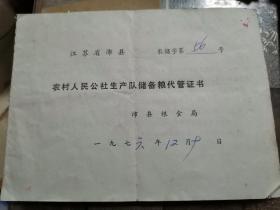 江苏省沛县 农储字第56号
农村人民公社生产队储备粮代管证书
沛县粮食局
一九七六年12月 日